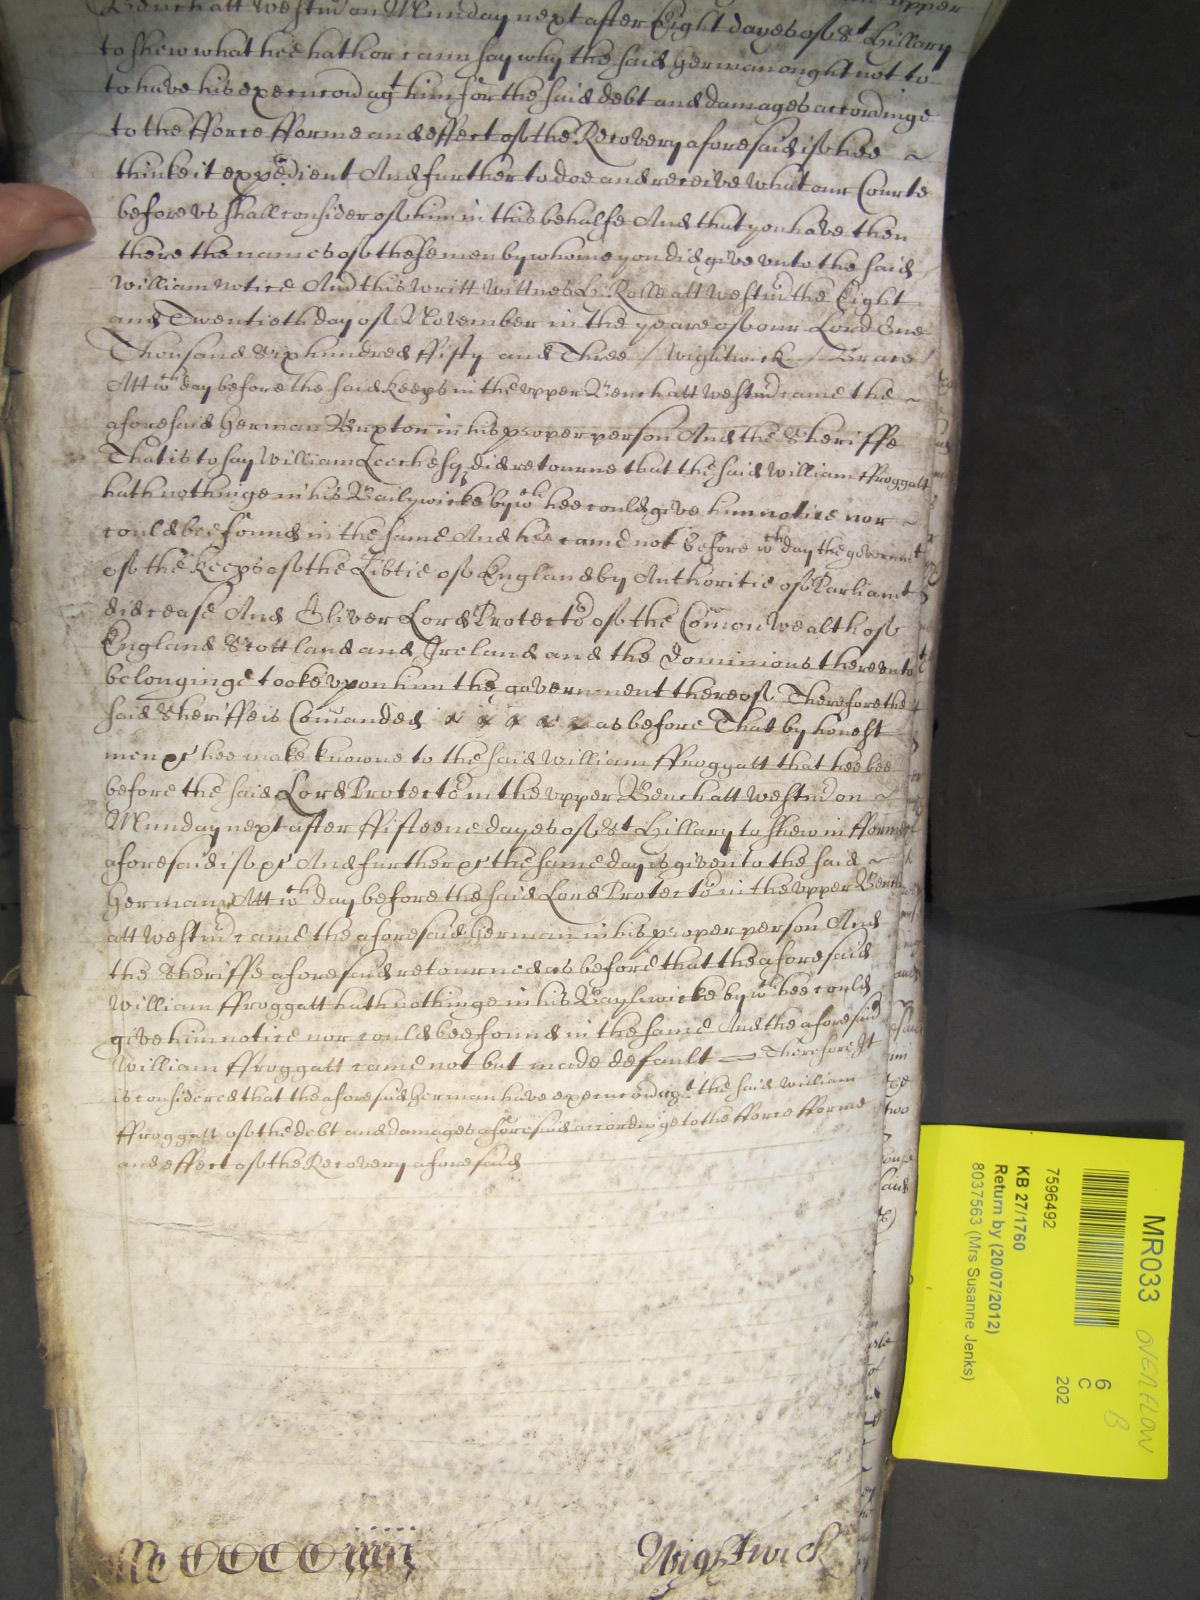 Bench att Westmr on Munday next after Eight dayes of St Hillary
to shew what hee hath or cann say why the said Herman ought not to
to have his execucon agt him for the said debt and damages accordinge
to the fforce fforme and effect of the Recovery aforesaid if hee
thinke it expedient And further to doe and receive what our Courte
before us shall consider of him in this behalfe And that you have then
there the names of these men by whome you did give unto the said
William notice And this writt Wittnes H: Rolle att Westmr the Eight
and Twentieth day of November in the yeare of our Lord One
Thousand Six hundred ffifty and Three / Wightwick
Att wch day before the said keeps in the upper Bench att Westmr came the
aforesaid Herman Buxton in his proper person And the Sheriffe
That is to say William Leech Esqr did retourne that the said William ffroggatt
hath nothinge in his Bailywicke by wch hee could give him notice nor
could bee found in the same And hee came not Before wch day the governmt
of the keeps of the Libtie of England by Authoritie of Parliamt
did cease And Oliver Lord Protector of the Comon Wealth of
England Scottland and Ireland and the Dominions thereunto
belonginge tooke upon him the government thereof Therefore the
said Sheriffe is Comanded x x x x x as before That by honest
men &c hee make knowne to the said William ffroggatt that hee bee
before the said Lord Protector in the upper Bench att Westmr on
Munday next after ffifteene dayes of St Hillary to shew in fforme
aforesaid if &c And further &c the same day is given to the said
Herman Att wch day before the said Lord Protector in the upper Bench
att Westmr came the aforesaid Herman in his proper person And
the Sheriffe aforesaid retourned as before that the aforesaid
William ffroggatt hath nothinge in his Baylywicke by wch hee could
give him notice nor could bee found in the same And the aforesaid
William ffroggatt came not but made default Therefore It
is considered that the aforesaid Herman have execucon agt the said William
ffroggatt of the debt and damages aforesaid accordinge to the fforce fforme
and effect of the Recovery aforesaid
Wightwick
MR033
OVERFLOW
B
6
C
202
7596492
KB 27/1760
Return by (20/07/2012)
8037563 (Mrs Susanne Jenks)